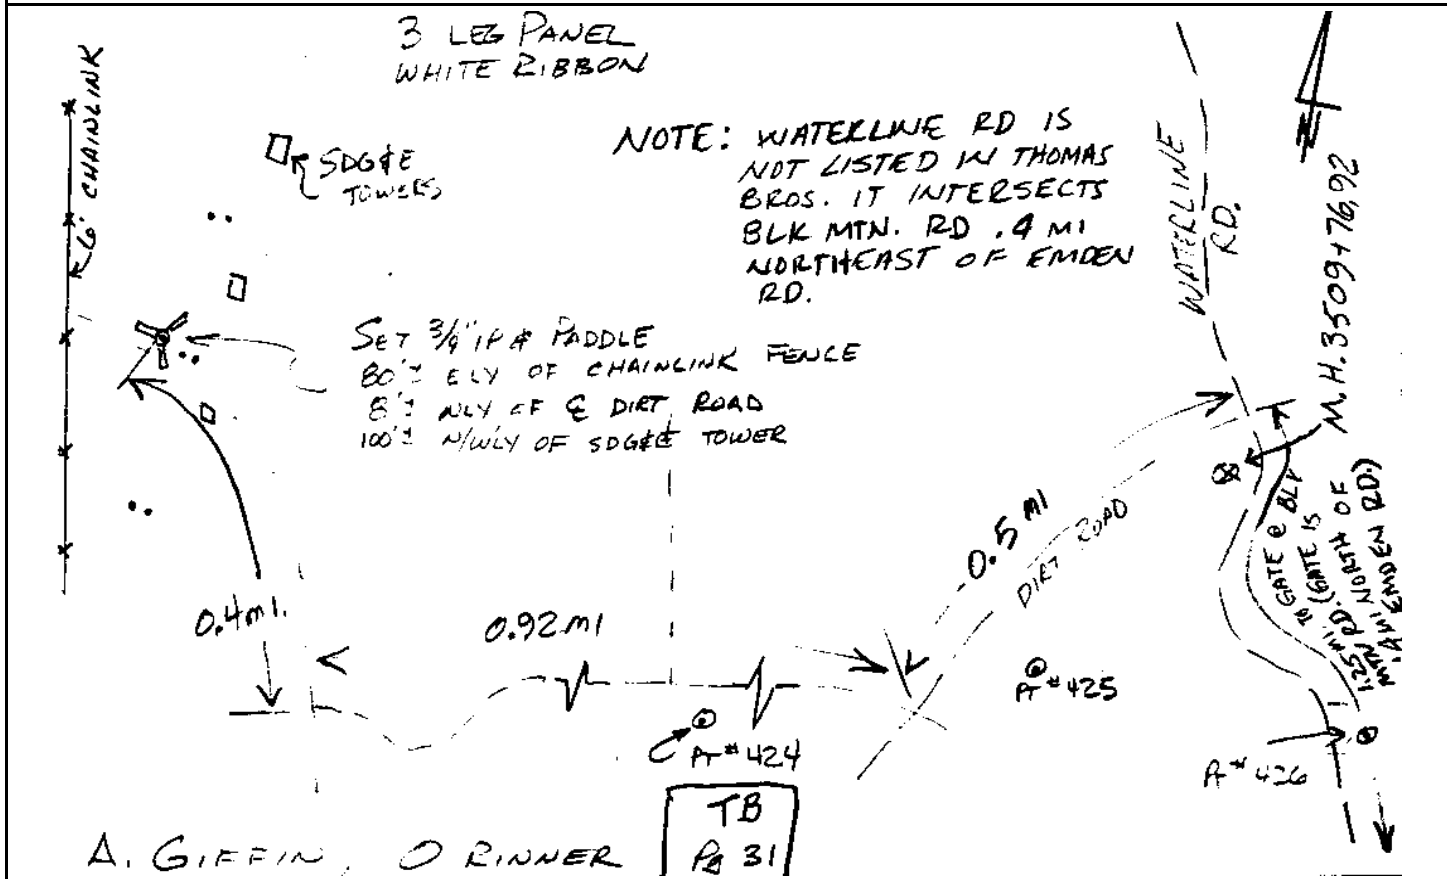 3 LEG PANEL
WHITE RIBBON
6' CHAINLINK
SDG&E
TOWERS
NOTE: WATERLINE RD IS
NOT LISTED IN THOMAS
BROS. IT INTERSECTS
BLK MTN. RD .4 MI
NORTHEAST OF EMDEN
RD.
WATERLINE
RD.
M.H. 3509+76.92
SET 3/4" IP & PADDLE
80'± ELY OF CHAINLINK FENCE
8'± NLY OF ℄ DIRT ROAD
100'± N/WLY OF SDG&E TOWER
0.4 MI.
0.92 MI
0.5 MI
DIRT ROAD
1.25 MI TO GATE @ BLK
MTN RD. (GATE IS
.4 MI NORTH OF
EMDEN RD.)
PT # 425
PT # 424
PT # 426
TB
Pg 31
A. GIFFIN, O RINNER